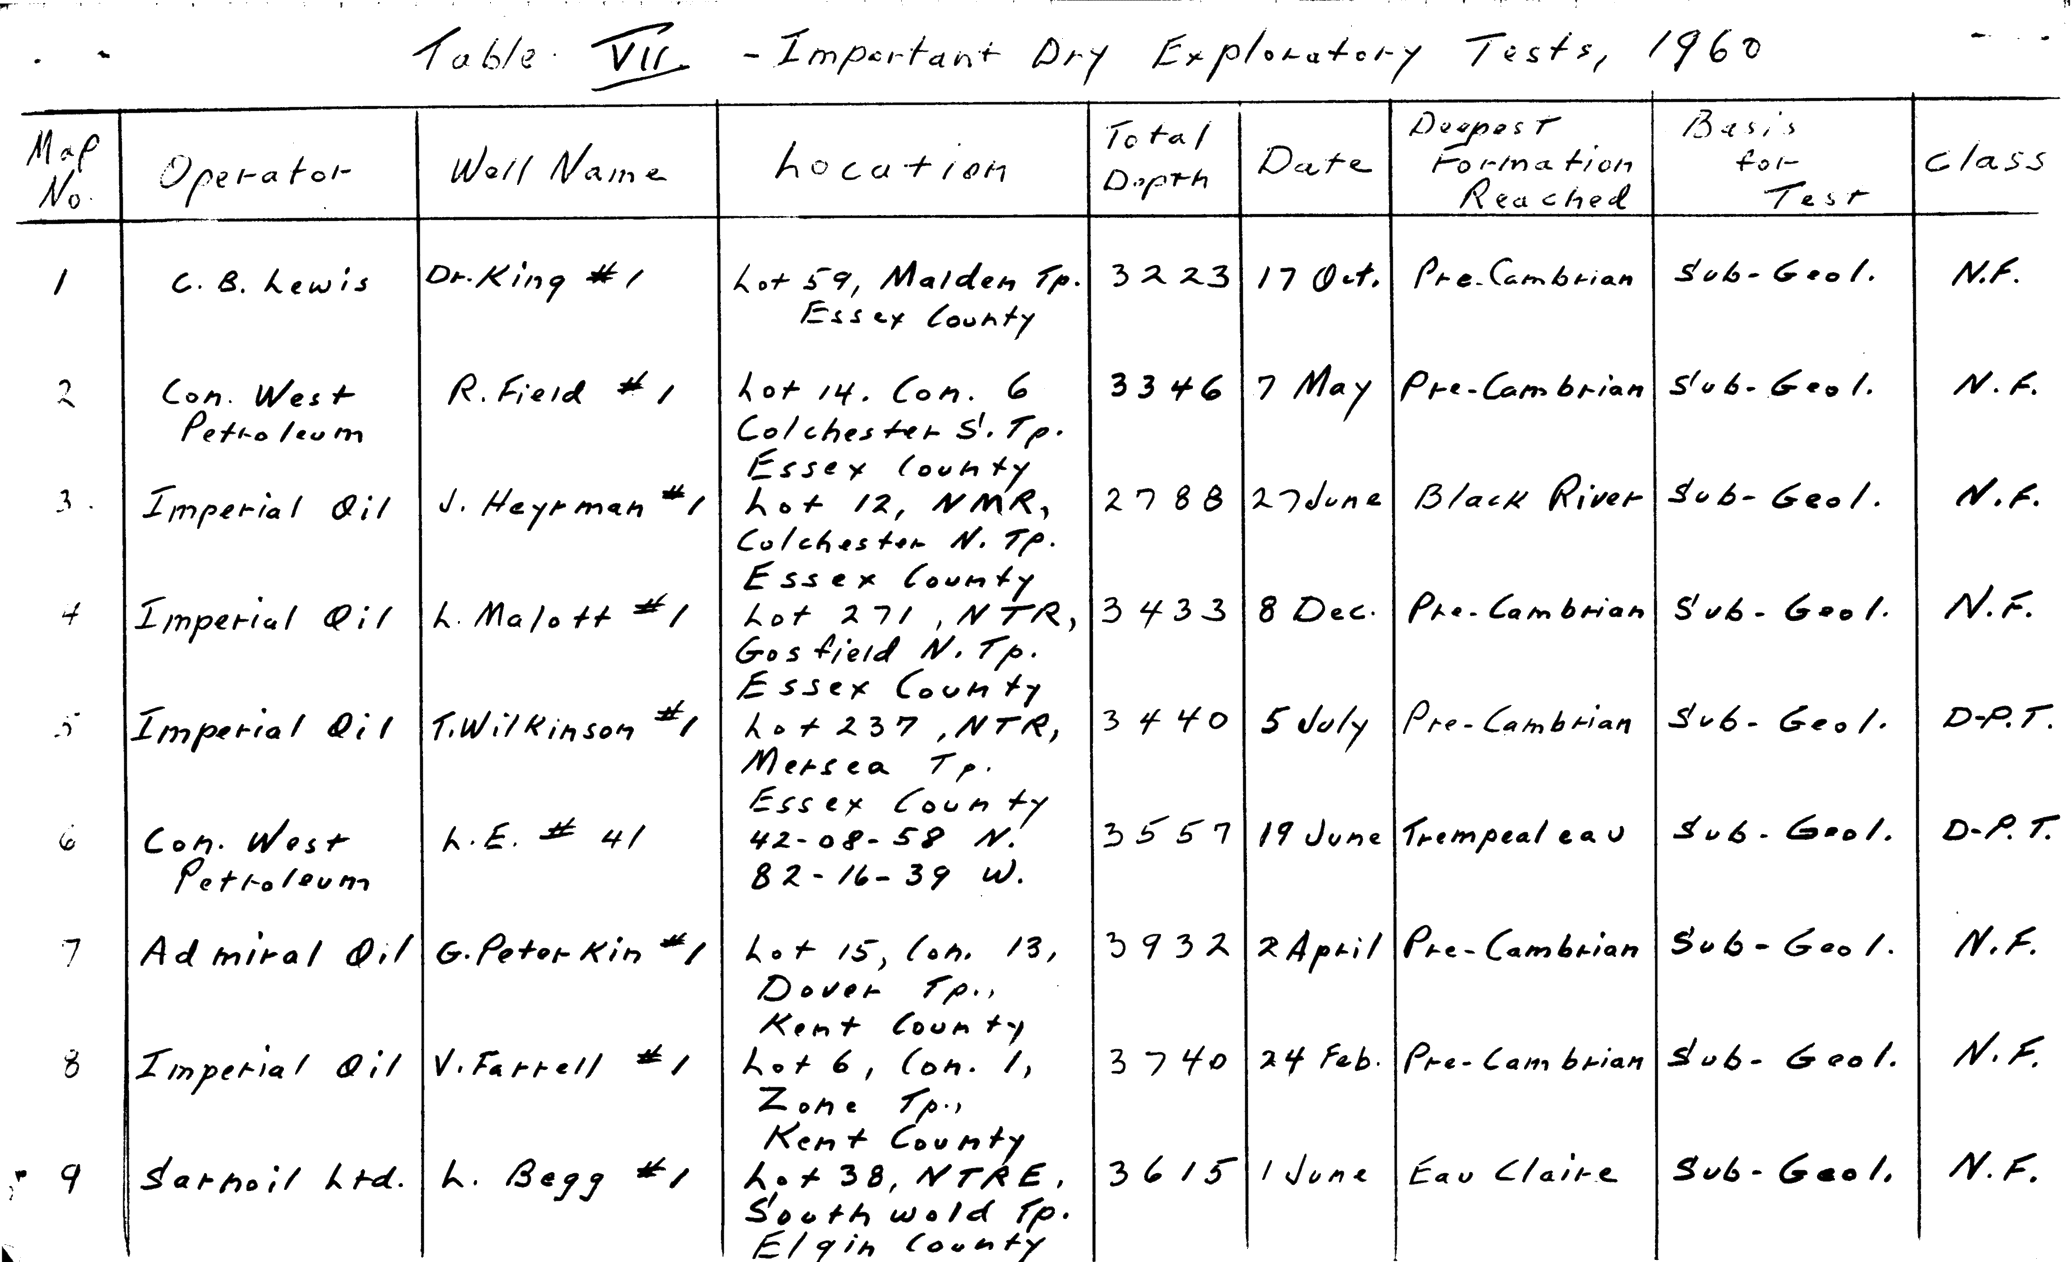 Table VII - Important Dry Exploratory Tests, 1960
Map No. Operator Well Name Location Total Depth Date Deepest Formation Reached Basis for Test Class
1 C. B. Lewis Dr. King #1 Lot 59, Malden Tp. 3223 17 Oct. Pre-Cambrian Sub-Geol. N.F.
Essex County
2 Con. West R. Field #1 Lot 14. Con. 6 3346 7 May Pre-Cambrian Sub-Geol. N.F.
Petroleum Colchester S. Tp.
Essex County
3. Imperial Oil J. Heyrman #1 Lot 12, NMR, 2788 27 June Black River Sub-Geol. N.F.
Colchester N. Tp.
Essex County
4 Imperial Oil L. Malott #1 Lot 271, NTR, 3433 8 Dec. Pre-Cambrian Sub-Geol. N.F.
Gosfield N. Tp.
Essex County
5 Imperial Oil T. Wilkinson #1 Lot 237, NTR, 3440 5 July Pre-Cambrian Sub-Geol. D-P.T.
Mersea Tp.
Essex County
6 Con. West L.E. # 41 42-08-58 N. 3557 19 June Trempealeau Sub-Geol. D-P.T.
Petroleum 82-16-39 W.
7 Admiral Oil G. Peterkin #1 Lot 15, Con. 13, 3932 2 April Pre-Cambrian Sub-Geol. N.F.
Dover Tp.,
Kent County
8 Imperial Oil V. Farrell #1 Lot 6, Con. 1, 3740 24 Feb. Pre-Cambrian Sub-Geol. N.F.
Zone Tp.,
Kent County
9 Sarnoil Ltd. L. Begg #1 Lot 38, NTRE, 3615 1 June Eau Claire Sub-Geol. N.F.
Southwold Tp.
Elgin County